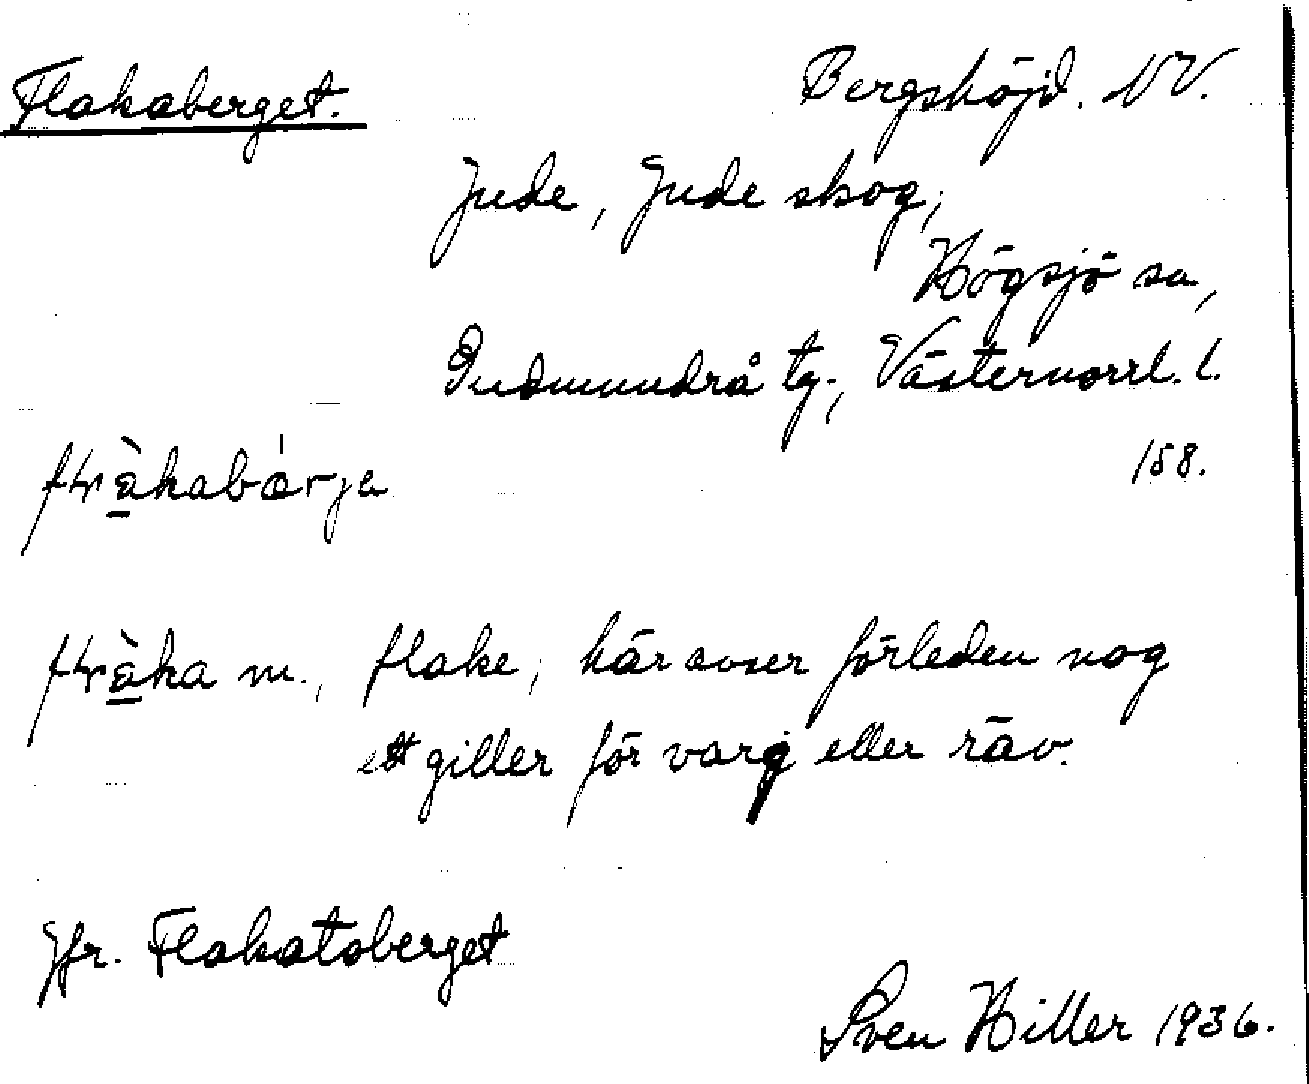 Flakaberget. Bergshöjd. NV.
Jude, Jude skog,
Högsjö sn,
Gudmundrå tg., Västernorrl. l.
158.
m., flake, här avser förleden nog
ett giller för varg eller räv.
Jfr. Flakatoberget
Sven Hiller 1936.